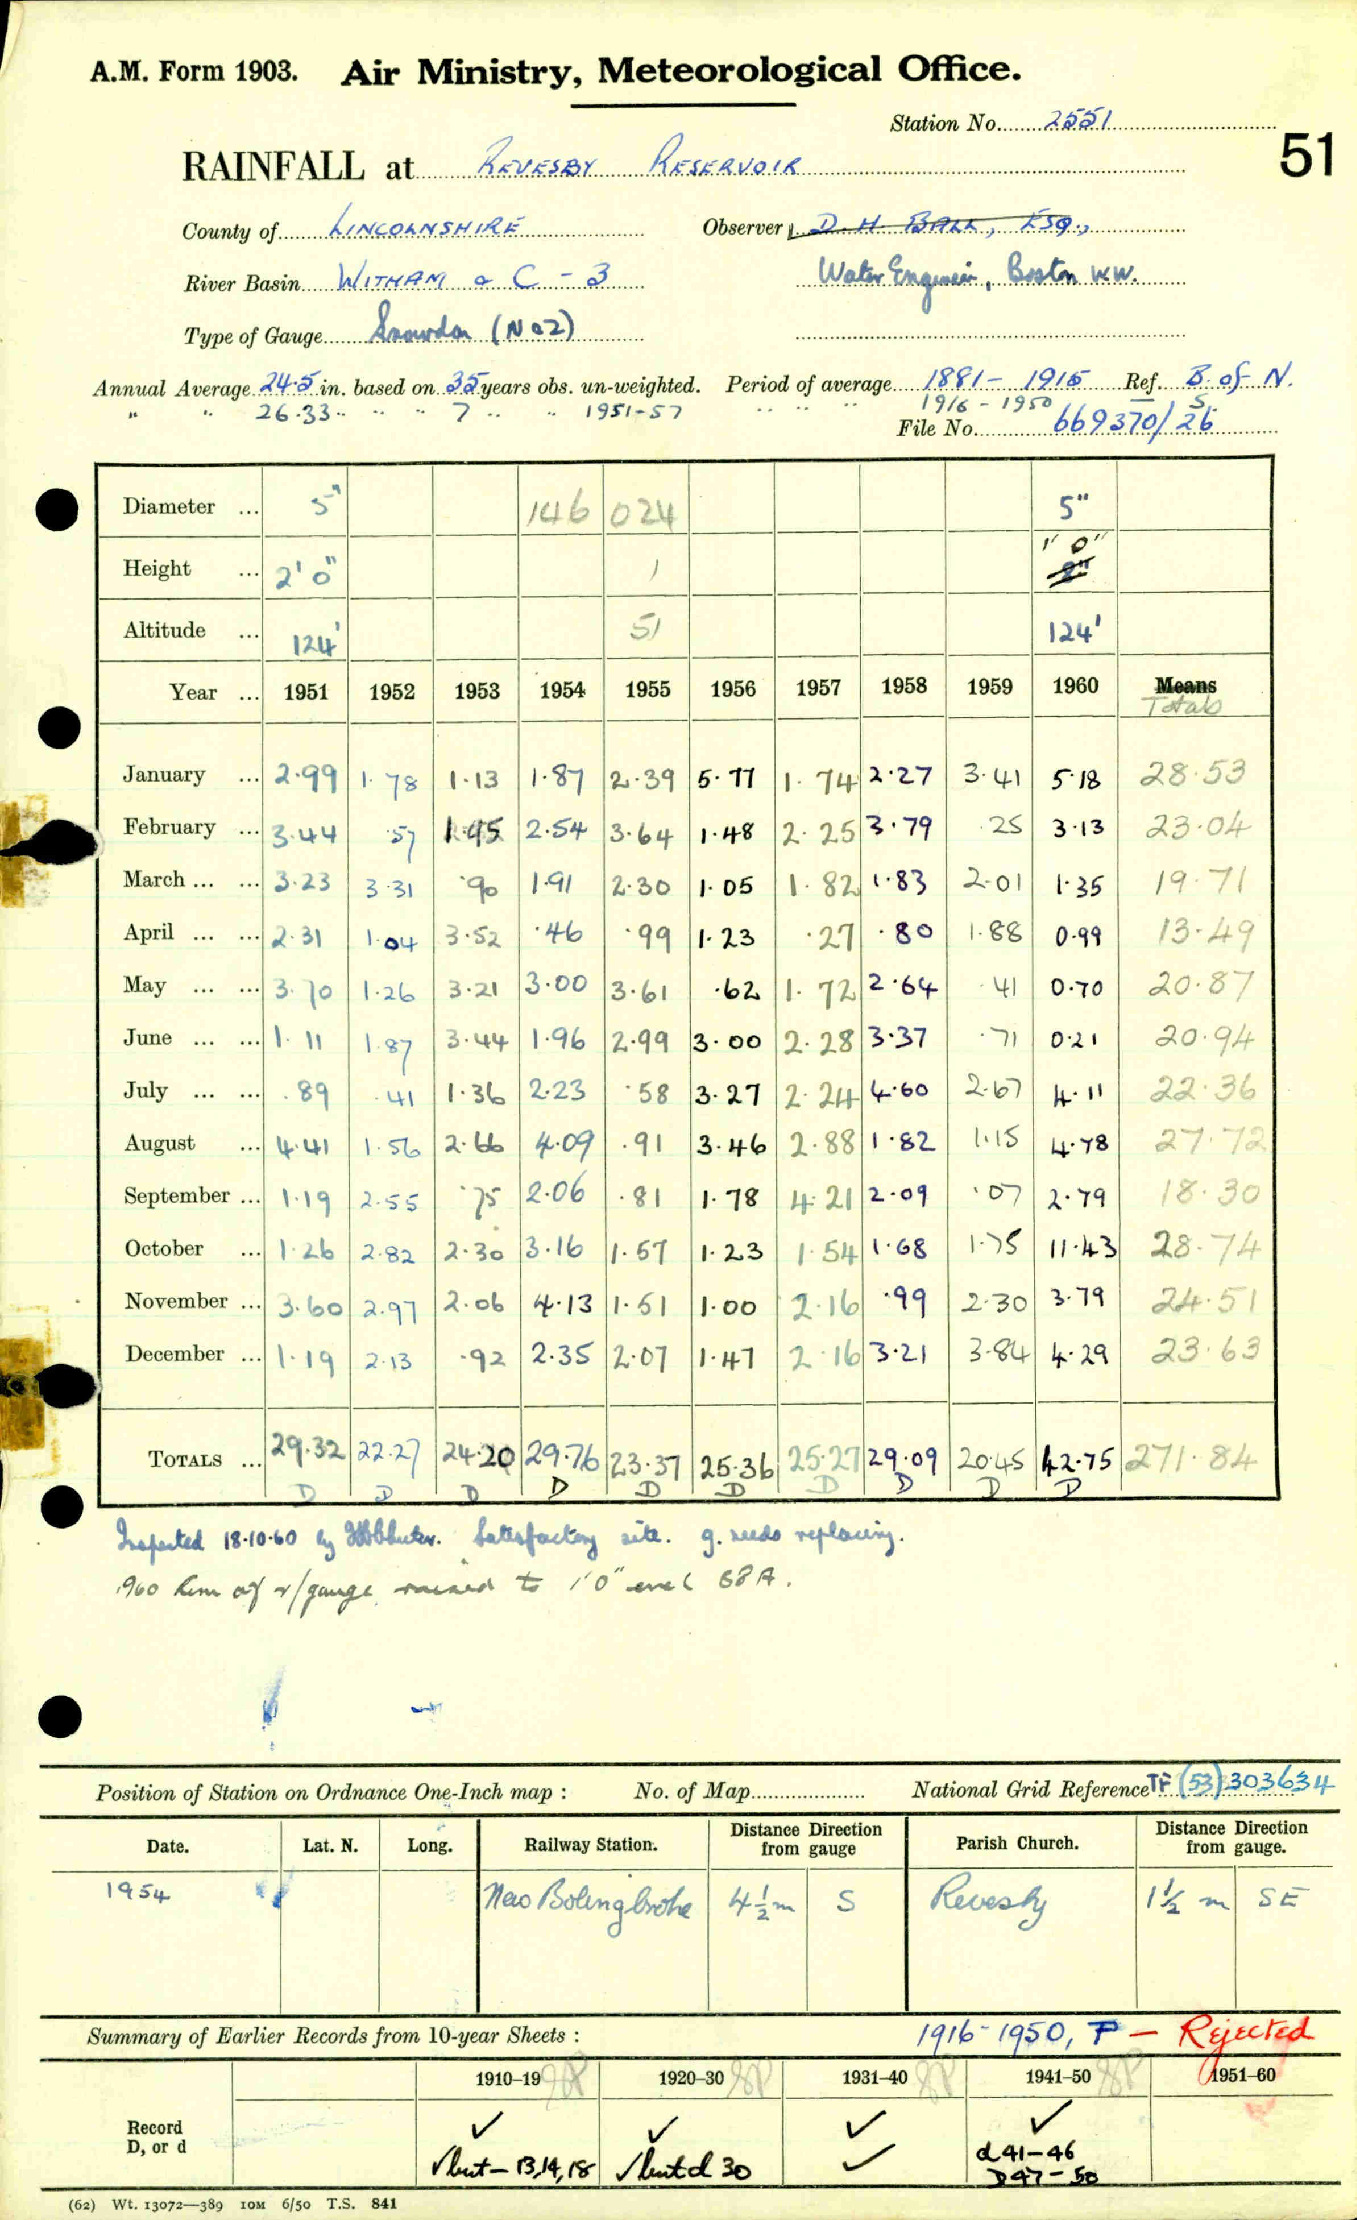 A.M. Form 1903. Air Ministry, Meteorological Office.
Station No. 2551
51
RAINFALL at REVESBY RESERVOIR
County of LINCOLNSHIRE Observer D. H. BALL, ESQ.,
River Basin WITHAM & C - 3 Water Engineer, Boston W.W.
Type of Gauge Snowdon (No 2)
Annual Average 24.5 in. based on 35 years obs. un-weighted. Period of average 1881 - 1915 Ref. B. of N.
" " 26.33 " " " 7 " " 1951-57 " " " 1916 - 1950 S
File No. 669370/26
Diameter ... 5" 146 024 5"
Height ... 2' 0" 1 1' 0" 8"
Altitude ... 124' 51 124'
Year ... 1951 1952 1953 1954 1955 1956 1957 1958 1959 1960 Means
Totals
January ... 2.99 1.78 1.13 1.87 2.39 5.77 1.74 2.27 3.41 5.18 28.53
February ... 3.44 .57 1.95 2.54 3.64 1.48 2.25 3.79 .25 3.13 23.04
March ... ... 3.23 3.31 .90 1.91 2.30 1.05 1.82 1.83 2.01 1.35 19.71
April ... ... 2.31 1.04 3.52 .46 .99 1.23 .27 .80 1.88 0.99 13.49
May ... ... 3.70 1.26 3.21 3.00 3.61 .62 1.72 2.64 .41 0.70 20.87
June ... ... 1.11 1.87 3.44 1.96 2.99 3.00 2.28 3.37 .71 0.21 20.94
July ... ... .89 .41 1.36 2.23 .58 3.27 2.24 4.60 2.67 4.11 22.36
August ... 4.41 1.56 2.66 4.09 .91 3.46 2.88 1.82 1.15 4.78 27.72
September ... 1.19 2.55 .75 2.06 .81 1.78 4.21 2.09 .07 2.79 18.30
October ... 1.26 2.82 2.30 3.16 1.57 1.23 1.54 1.68 1.75 11.43 28.74
November ... 3.60 2.97 2.06 4.13 1.51 1.00 2.16 .99 2.30 3.79 24.51
December ... 1.19 2.13 .92 2.35 2.07 1.47 2.16 3.21 3.84 4.29 23.63
TOTALS ... 29.32 22.27 24.20 29.76 23.37 25.36 25.27 29.09 20.45 42.75 271.84
D D D D D D D D D D
Inspected 18.10.60 by Satisfactory site. g. needs replacing.
1960 Rim of r/gauge raised to 1'0"
Position of Station on Ordnance One-Inch map : No. of Map National Grid Reference TF (53) 303634
Date. Lat. N. Long. Railway Station. Distance from Direction gauge Parish Church. Distance from Direction gauge.
1954 New Bolingbroke 4½ m S Revesby 1½ m SE
Summary of Earlier Records from 10-year Sheets : 1916-1950, F — Rejected
1910-19 1920-30 1931-40 1941-50 1951-60
Record ✓ ✓ ✓ ✓
D, or d ✓ but - 13,14,18 ✓ but d 30 ✓ d 41-46
D 47-50
(62) Wt. 13072—389 10M 6/50 T.S. 841